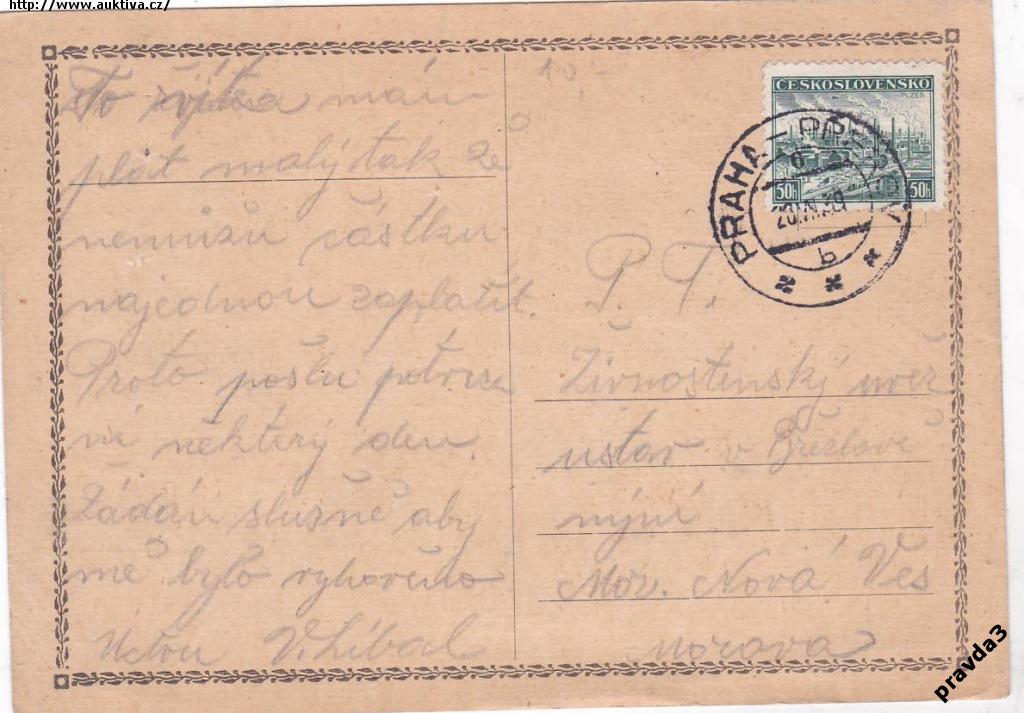 http://www.auktiva.cz/
mám
plat malý tak že
nemůžu částku
najednou zaplatit.
Proto pošlu
některý den.
Žádám slušně aby
mě bylo vyhověno
V. Líbal
10,-
ČESKOSLOVENSKO
PLZEŇ
50h 50h
PRAHA
b
P. T.
Živnostenský úvěr
ustav v Břeclavě
nýní
Mor. Nová Ves
Morava
pravda3